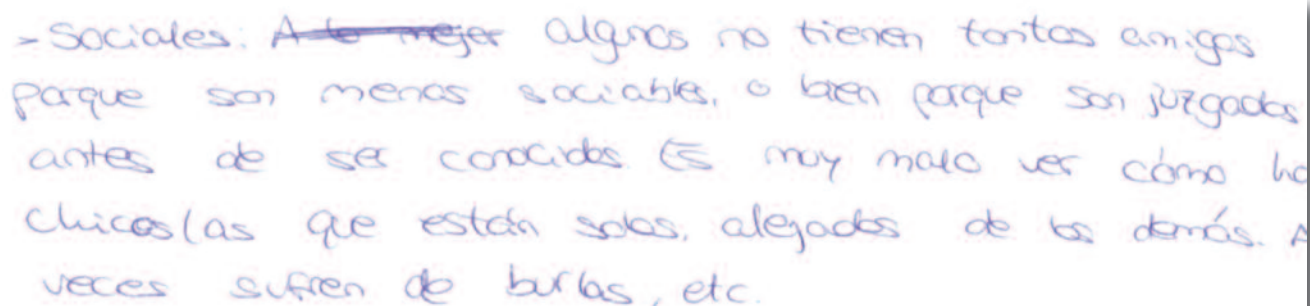 > Sociales: A lo mejor algunos no tienen tantos amigos
porque son menos sociables, o bien porque son juzgados
antes de ser conocidos Es muy malo ver cómo ha
chicos/as que están solos, alejados de los demás. A
veces sufren de burlas, etc.